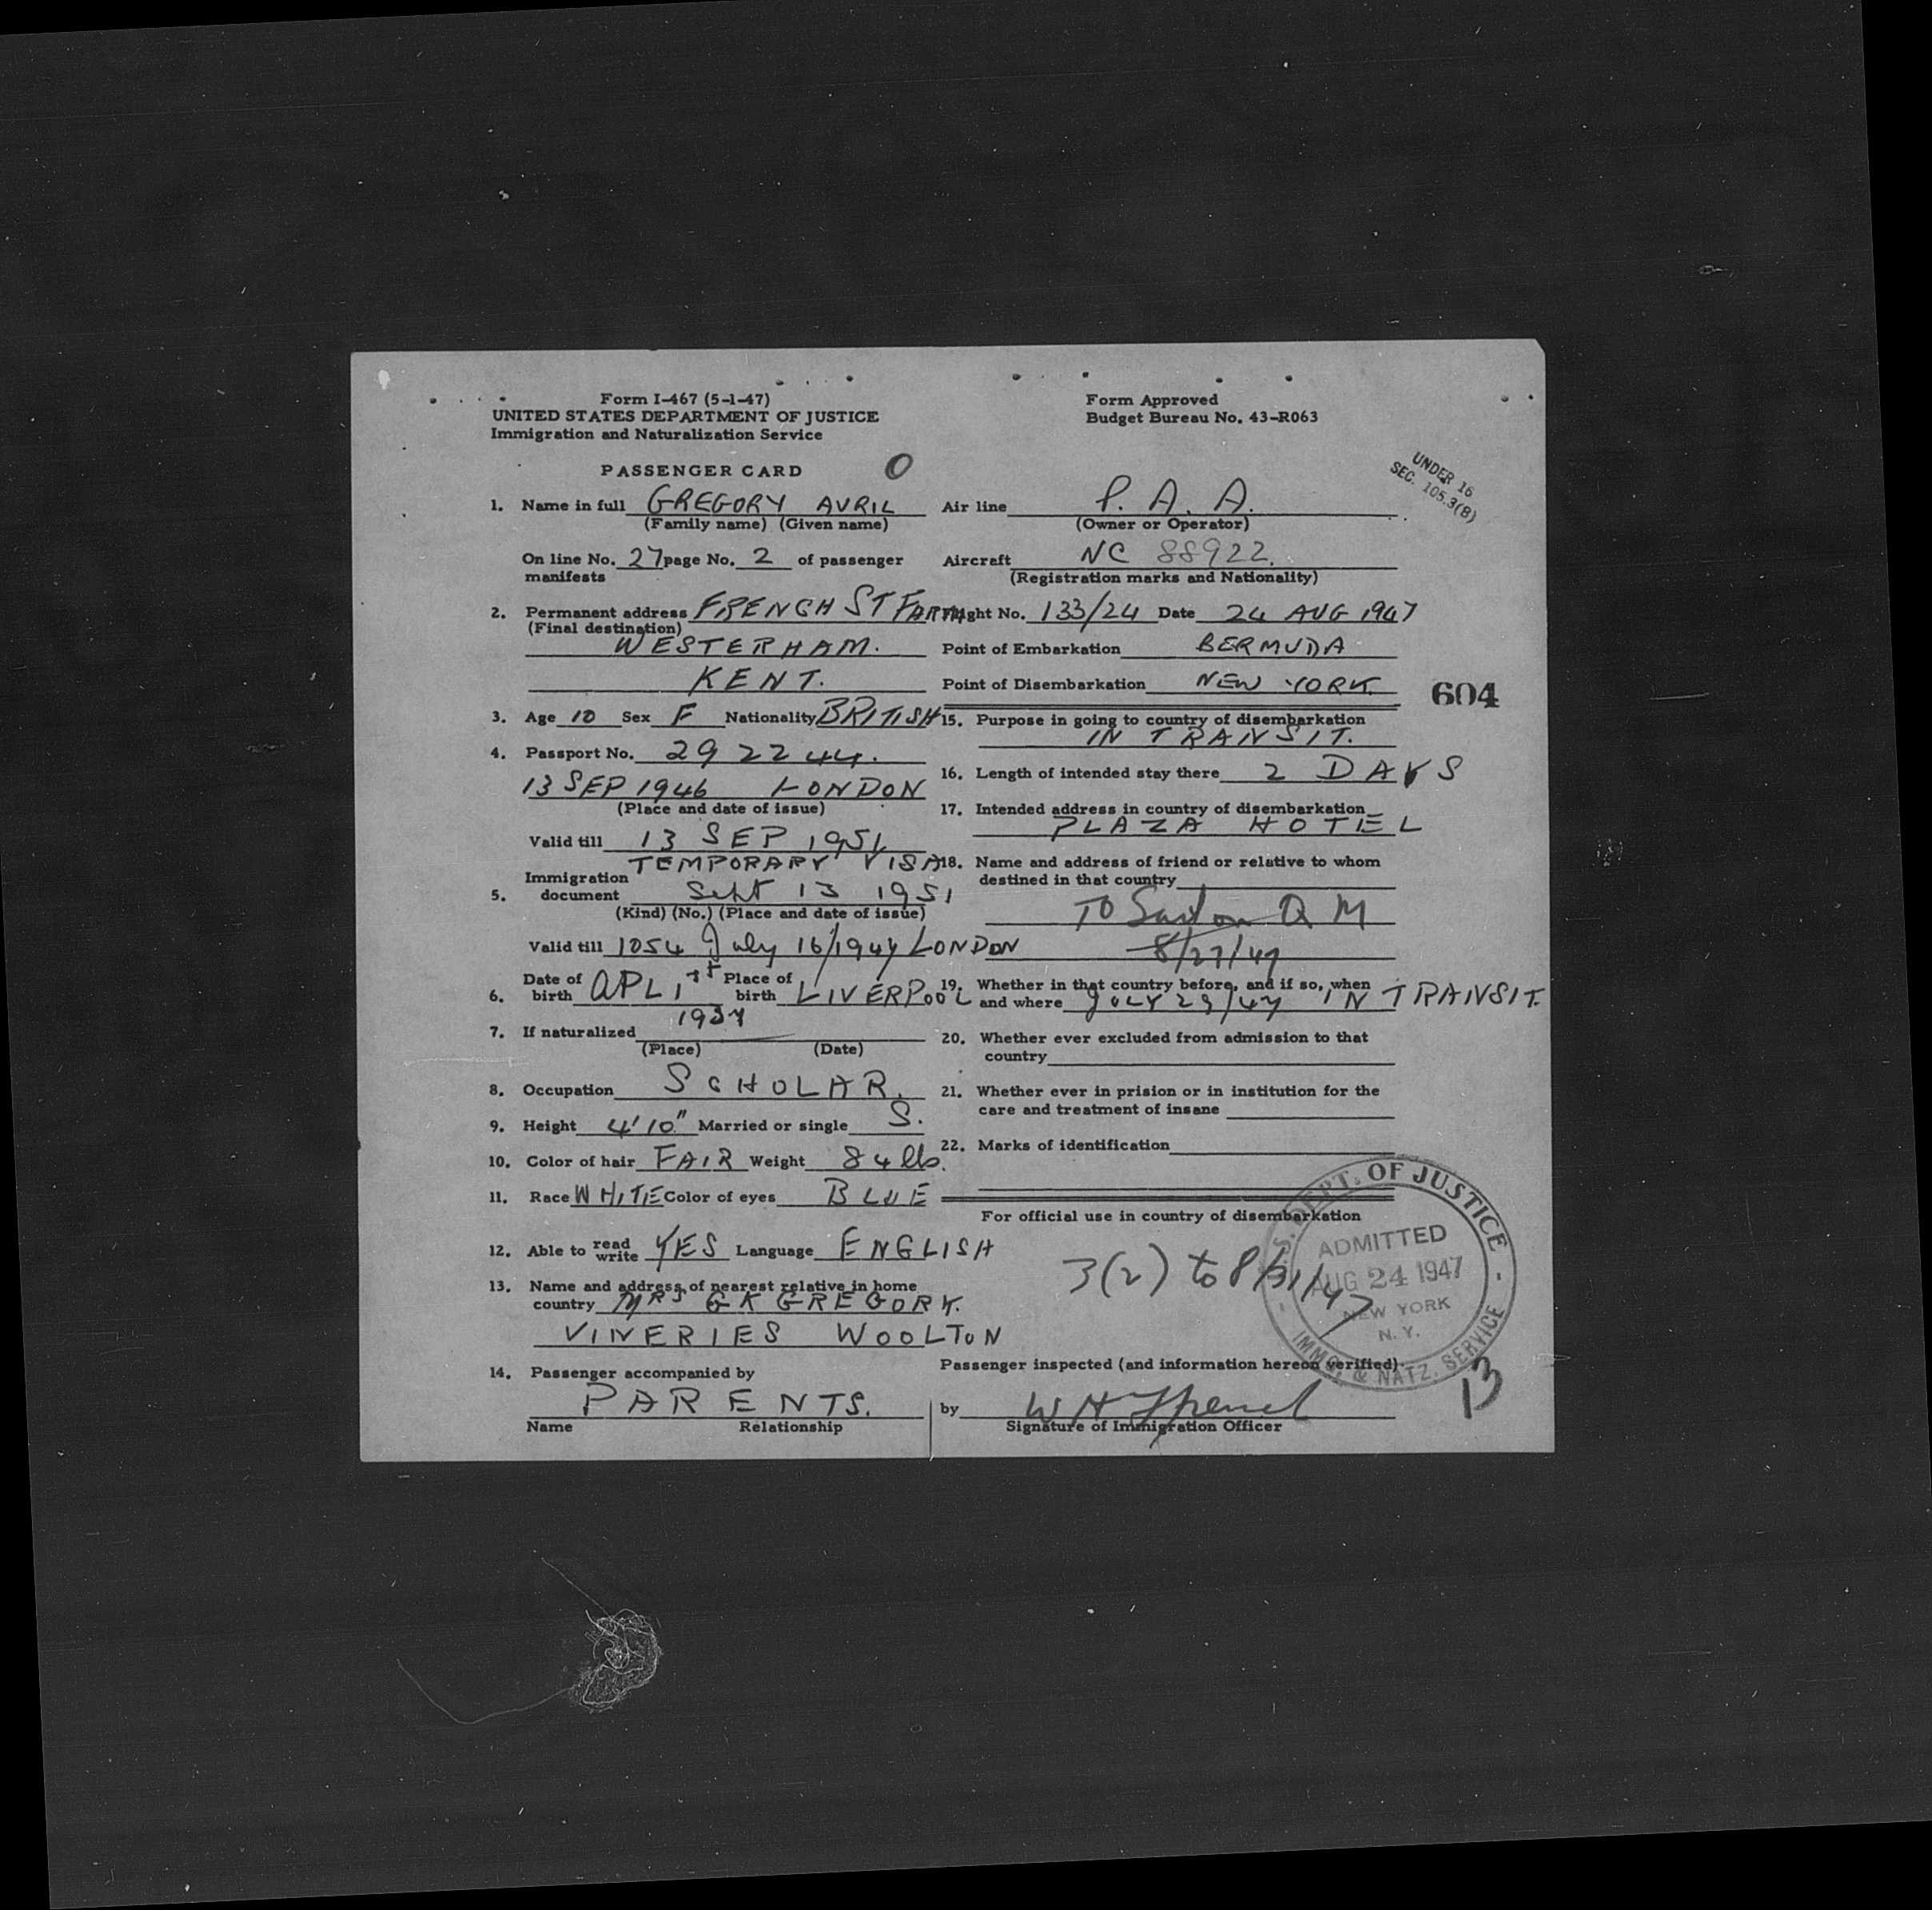 Form I-467 (5-1-47)
UNITED STATES DEPARTMENT OF JUSTICE
Immigration and Naturalization Service
Form Approved
Budget Bureau No. 43-R063
PASSENGER CARD
O
UNDER 16
SEC. 105.3(B)
1. Name in full GREGORY AVRIL
(Family name) (Given name)
On line No. 27 page No. 2 of passenger
manifests
2. Permanent address FRENCH ST FARM
(Final destination)
WESTERHAM.
KENT.
3. Age 10 Sex F Nationality BRITISH
4. Passport No. 292244.
13 SEP 1946 LONDON
(Place and date of issue)
Valid till 13 SEP 1951
TEMPORARY VISA
Immigration
5. document Sept 13 1951
(Kind) (No.) (Place and date of issue)
Valid till 1054 July 16/1947 LONDON
6. Date of birth APL 1st 1937 Place of birth LIVERPOOL
7. If naturalized
(Place) (Date)
8. Occupation SCHOLAR.
9. Height 4'10" Married or single S.
10. Color of hair FAIR Weight 84 lbs.
11. Race WHITE Color of eyes BLUE
12. Able to read write YES Language ENGLISH
13. Name and address of nearest relative in home
country MRS G K GREGORY.
VINERIES WOOLTON
14. Passenger accompanied by
PARENTS.
Name Relationship
Air line P. A. A.
(Owner or Operator)
Aircraft NC 88922.
(Registration marks and Nationality)
Flight No. 133/24 Date 24 AUG 1947
Point of Embarkation BERMUDA
Point of Disembarkation NEW YORK
604
15. Purpose in going to country of disembarkation
IN TRANSIT.
16. Length of intended stay there 2 DAYS
17. Intended address in country of disembarkation
PLAZA HOTEL
18. Name and address of friend or relative to whom
destined in that country
TO Q M
8/27/47
19. Whether in that country before, and if so, when
and where JULY 29/47 IN TRANSIT.
20. Whether ever excluded from admission to that
country
21. Whether ever in prision or in institution for the
care and treatment of insane
22. Marks of identification
For official use in country of disembarkation
3(2) to 8/31/47
U.S. DEPT. OF JUSTICE
ADMITTED
AUG 24 1947
NEW YORK
N. Y.
IMMG. & NATZ. SERVICE
13
Passenger inspected (and information hereon verified)
by W H
Signature of Immigration Officer